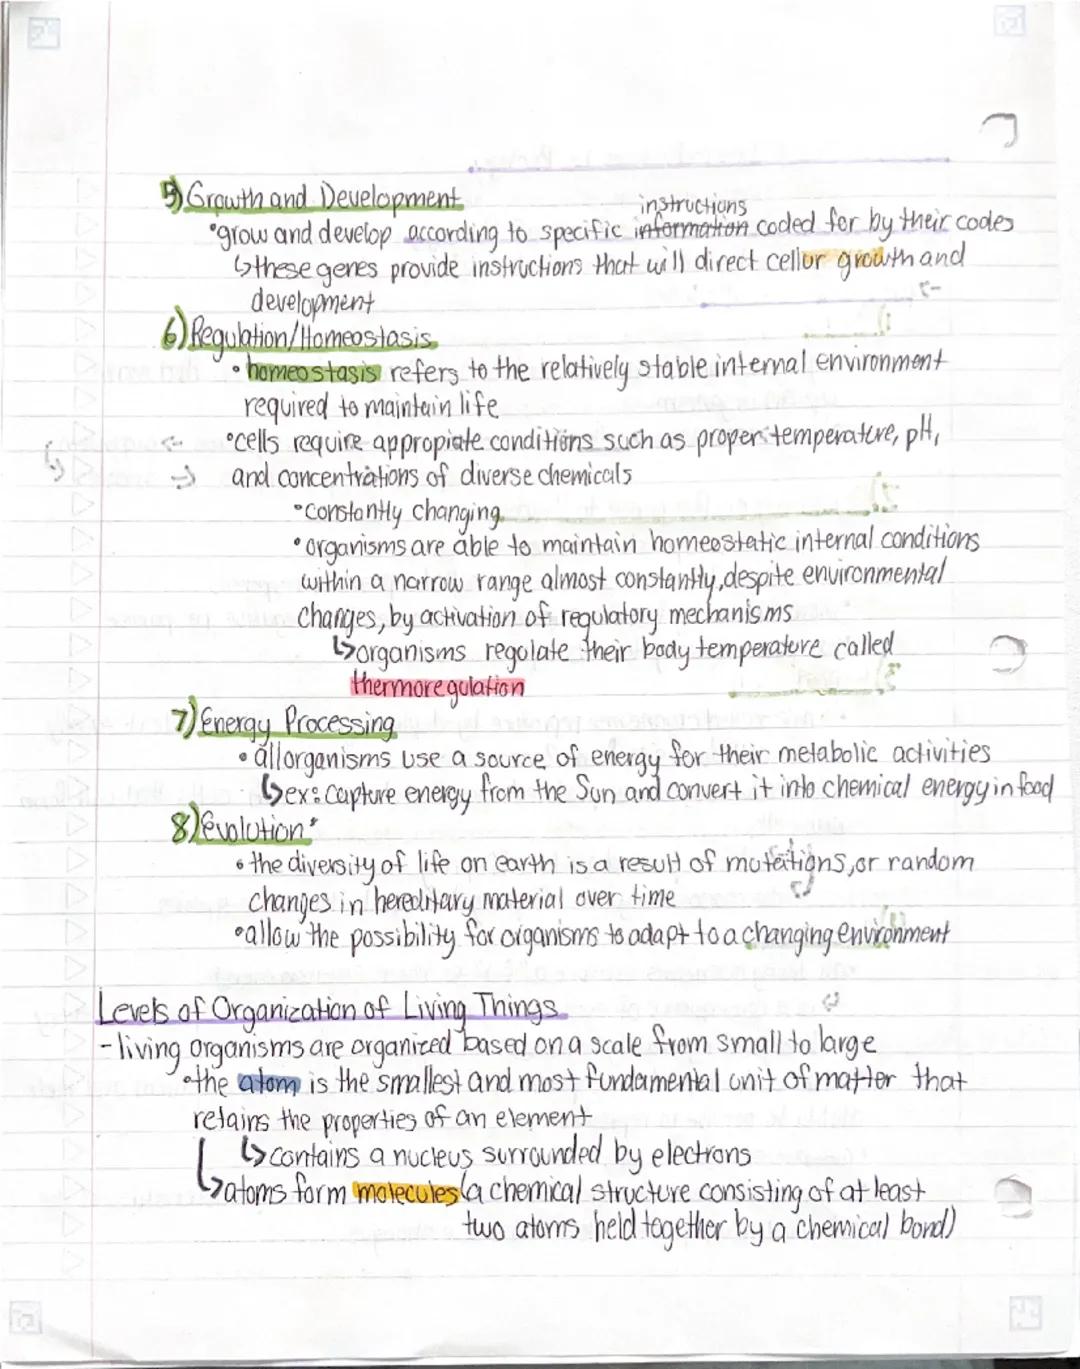 5) Growth and Development
instructions
•grow and develop according to specific information coded for by their codes
↳these genes provide instructions that will direct cellur growth and
development
6) Regulation/Homeostasis
•homeostasis refers to the relatively stable internal environment
required to maintain life
•cells require appropiate conditions such as proper temperature, pH,
and concentrations of diverse chemicals
•constantly changing
•organisms are able to maintain homeostatic internal conditions
within a narrow range almost constantly, despite environmental
changes, by activation of regulatory mechanisms
↳organisms regulate their body temperature called
thermoregulation
7) Energy Processing
•all organisms use a source of energy for their metabolic activities
↳ex: capture energy from the Sun and convert it into chemical energy in food
8) Evolution*
•the diversity of life on earth is a result of mutations, or random
changes in hereditary material over time
•allow the possibility for organisms to adapt to a changing environment
Levels of Organization of Living Things
- living organisms are organized based on a scale from small to large
•the atom is the smallest and most fundamental unit of matter that
retains the properties of an element
↳contains a nucleus surrounded by electrons
↳atoms form molecules (a chemical structure consisting of at least
two atoms held together by a chemical bond)